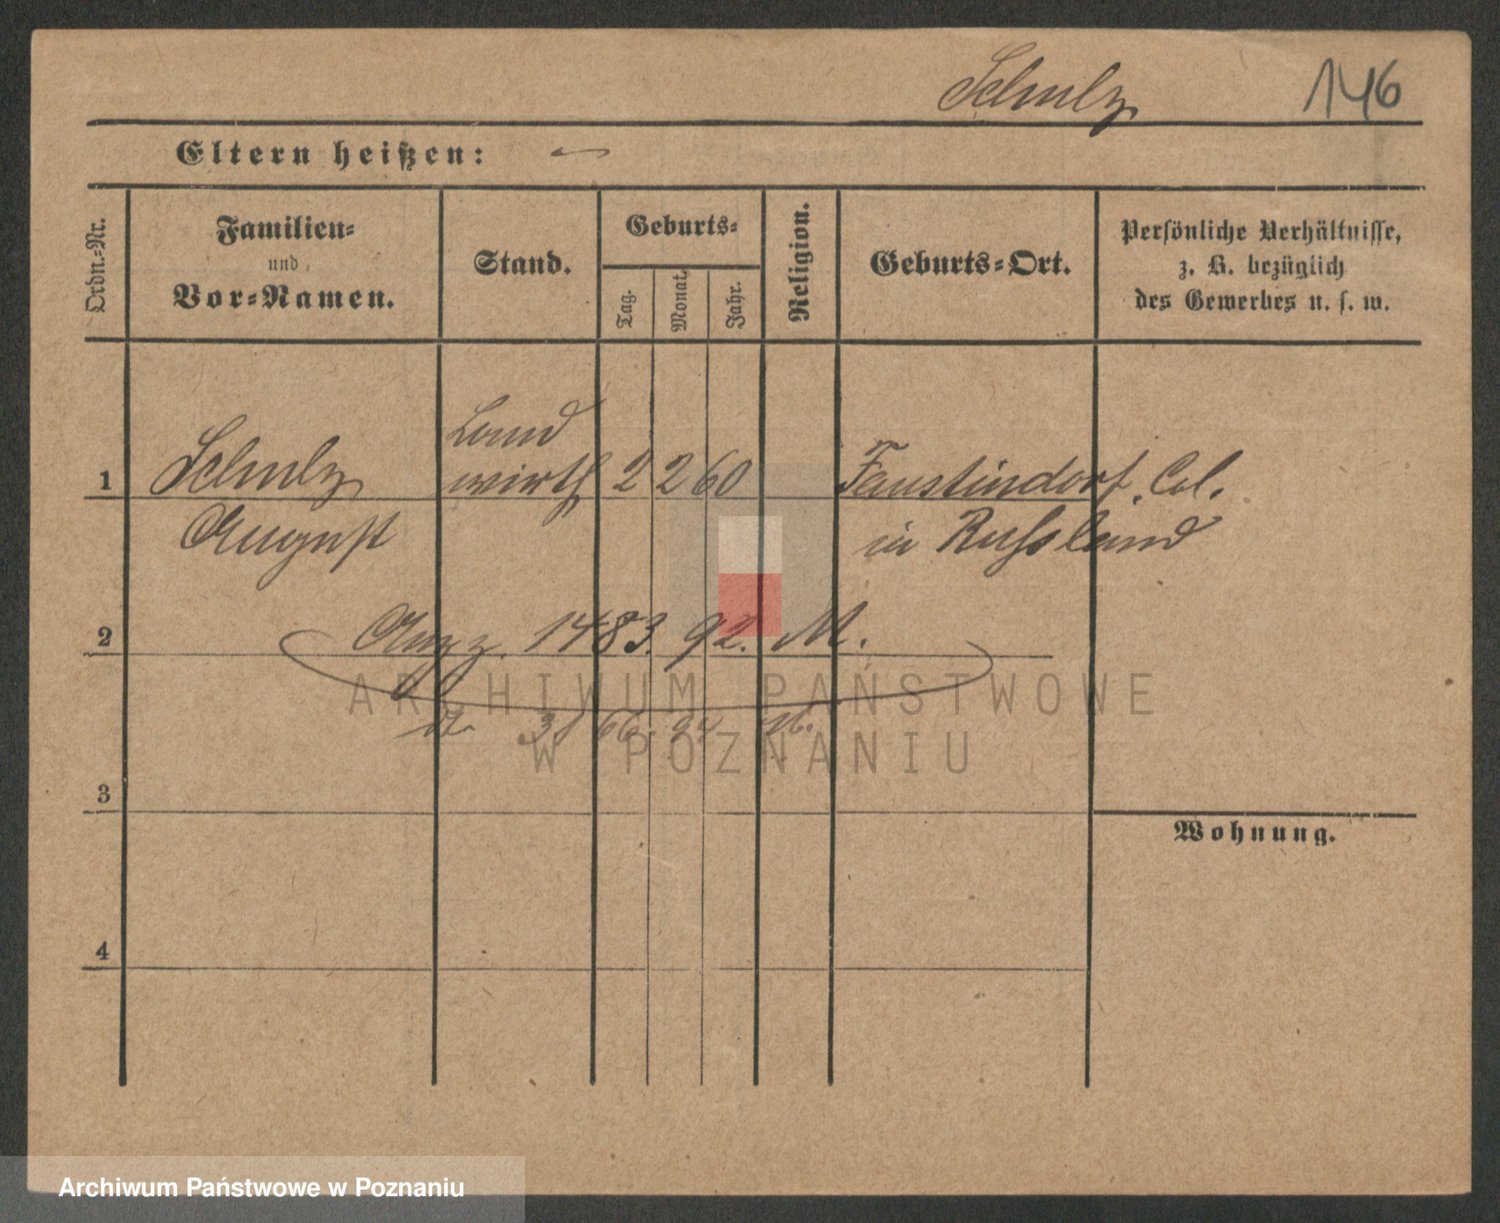 Schulz 146
Eltern heißen:
Ordn.-Nr.
Familien-
und
Vor-Namen.
Stand.
Geburts-
Tag.
Monat.
Jahr.
Religion.
Geburts-Ort.
Persönliche Verhältnisse,
z. B. bezüglich
des Gewerbes u. s. w.
Land
1 Schulz wirth 2 2 60 Faustindorf, Col.
August in Russland
2 Anz. 1483. 92. M.
ARCHIWUM PAŃSTWOWE
W POZNANIU
3
Wohnung.
4
Archiwum Państwowe w Poznaniu